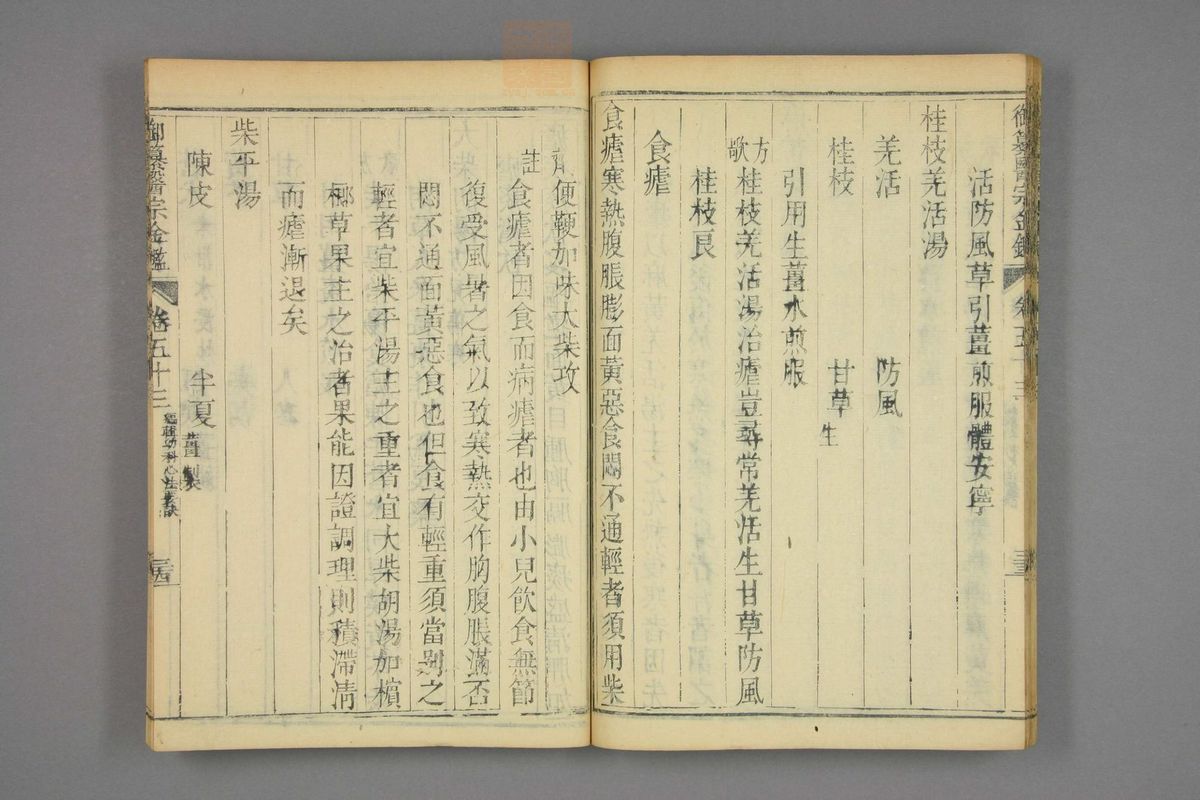 御纂醫宗金鑑 卷五十三
活防風草引薑煎服體安寧
桂枝羌活湯
羌活 防風
桂枝 甘草生
引用生薑水煎服
方歌 桂枝羌活湯治瘧豈尋常羌活生甘草防風
桂枝良
食瘧
食瘧寒熱腹脹膨面黃惡食悶不通輕者須用柴
便鞕加味大柴攻
註 食瘧者因食而病瘧者也由小兒飲食無節
復受風暑之氣以致寒熱交作胸腹脹滿痞
悶不通面黃惡食也但食有輕重須當别之
輕者宜柴平湯主之重者宜大柴胡湯加檳
榔草果主之治者果能因證調理則積滯清
而瘧漸退矣
柴平湯
陳皮 半夏薑製
御纂醫宗金鑑 卷五十三 編輯幼科心法要訣 三四